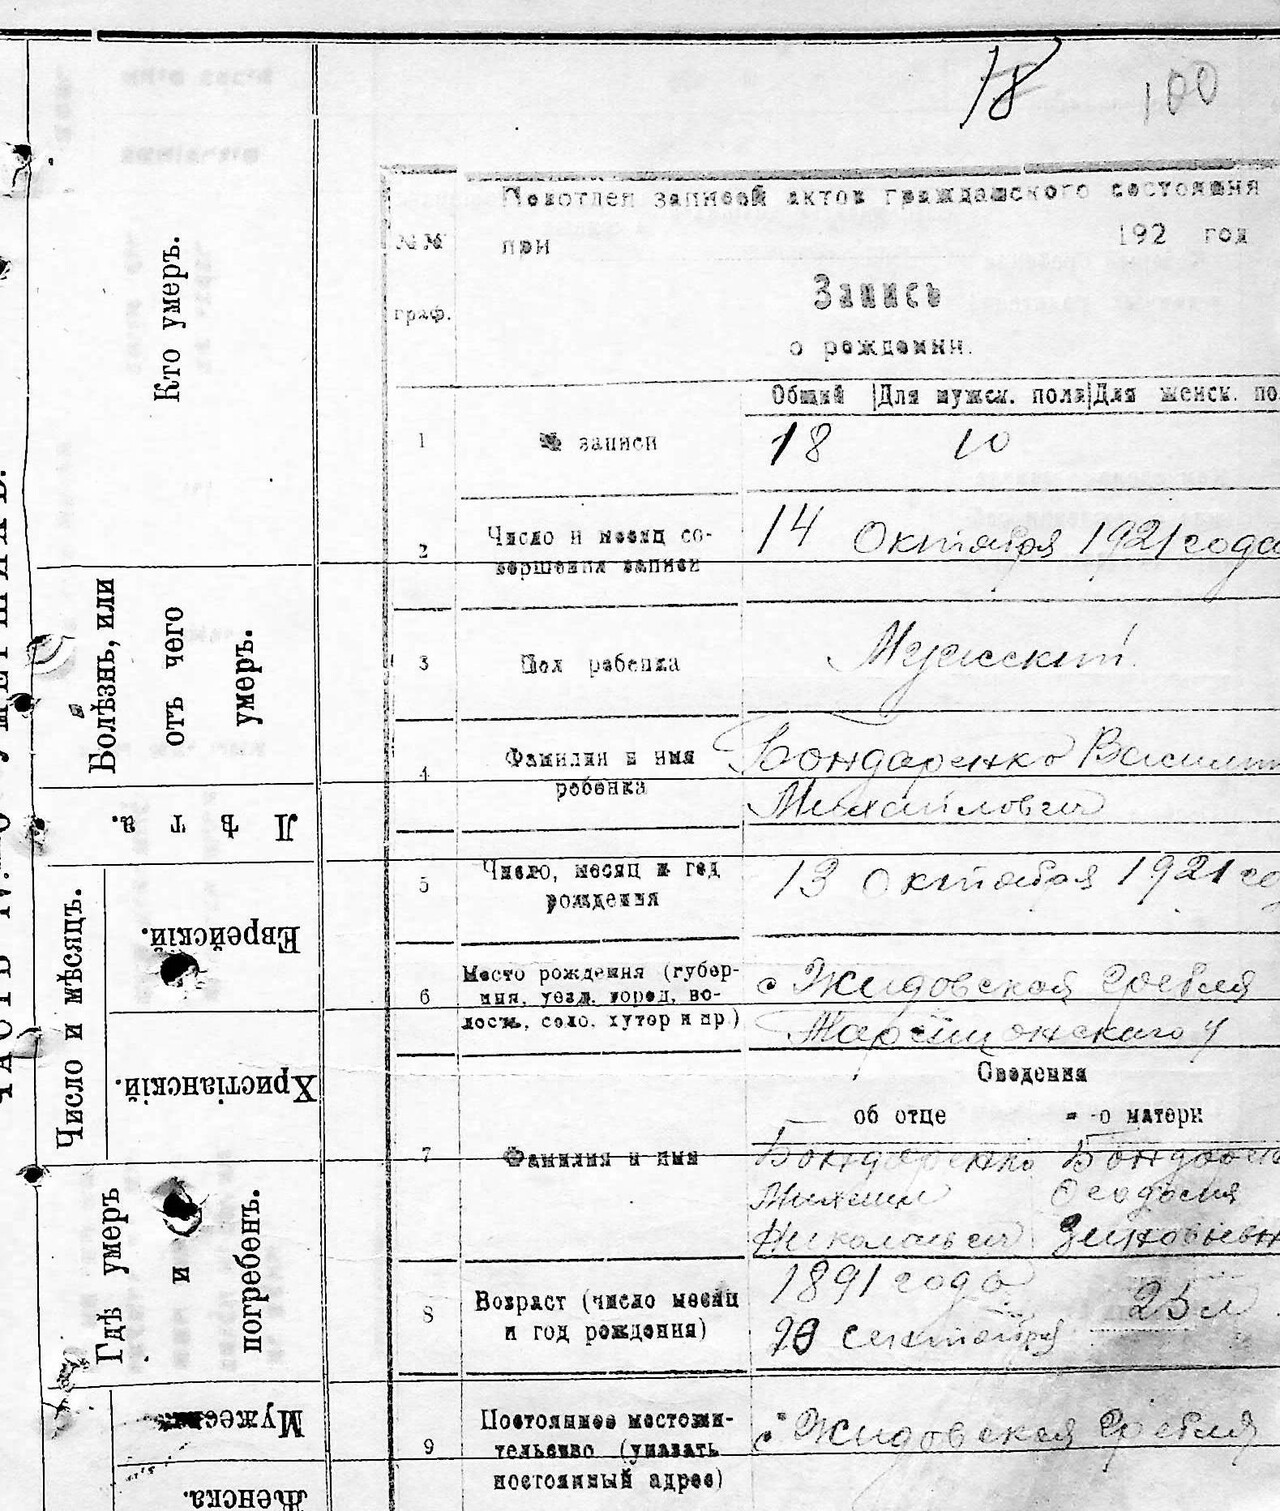 18 100
Подотдел записей актов гражданского состояния
при 192 год
№№
граф.
Запись
о рождении.
Общий Для мужск. пола Для женск. по
1 № записи 18 10
2 Число и месяц со-
вершения записи
14 Октября 1921 года
3 Пол ребенка Мужский
4 Фамилия и имя
ребенка
Бондаренко Василий
Михайлович
5 Число, месяц и год
рождения
13 Октября 1921 го
6 Место рождения (губер-
ния, уезд, город, во-
лость, село, хутор и пр.)
с Жидовская Гребля
Сведения
об отце о матери
7 Фамилия и имя
Бондаренко
Михаил
Николаевич
Феодосия
Зиновьевн
8 Возраст (число месяц
и год рождения)
1891 года
сентября
25 л
9 Постоянное местожи-
тельство (указать
постоянный адрес)
с Жидовская Гребля
Кто умеръ.
Болѣзнь, или
отъ чего
умеръ.
Лѣта.
Число и мѣсяцъ.
Еврейскій.
Христіанскій.
Гдѣ умеръ
и
погребенъ.
Мужеска.
Женска.